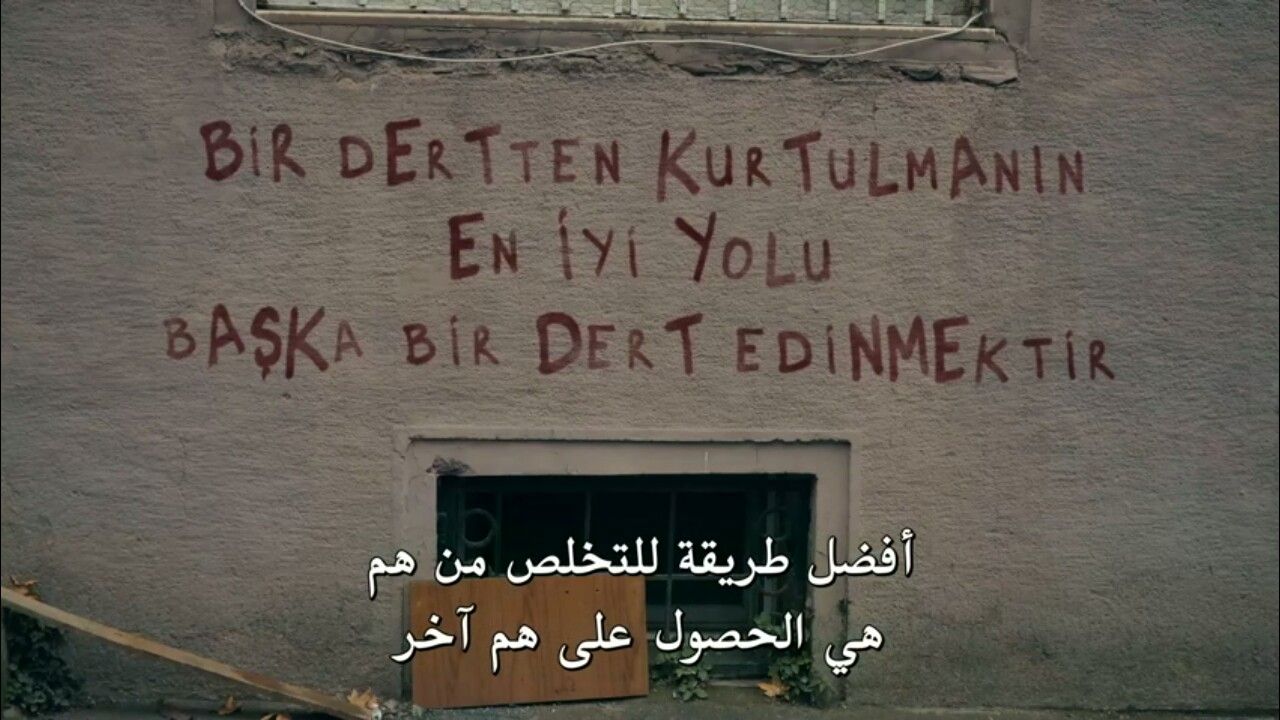 BİR DERTTEN KURTULMANIN
EN İYİ YOLU
BAŞKA BİR DERT EDİNMEKTİR
أفضل طريقة للتخلص من هم
هي الحصول على هم آخر